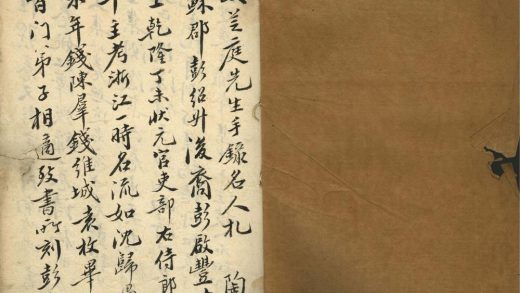 芝庭先生手錄名人札 陶
蘇郡彭紹升後裔彭啟豐
乾隆丁未狀元官吏部右侍郎
主考浙江一時名流如沈歸
年錢陳羣錢維城袁枚畢
門弟子相適致書所刻彭